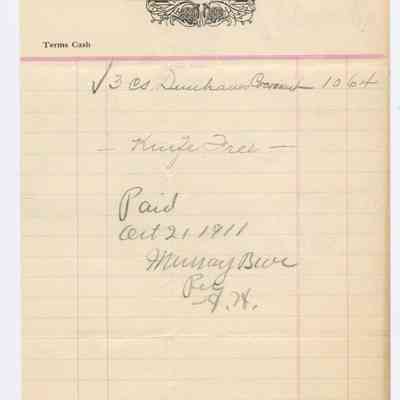 Terms Cash
✓ 3 cs. Dunhams Cocoanut 10 64
— Knife Free —
Paid
Oct 21-1911
Murray Bros
Per
A. H.